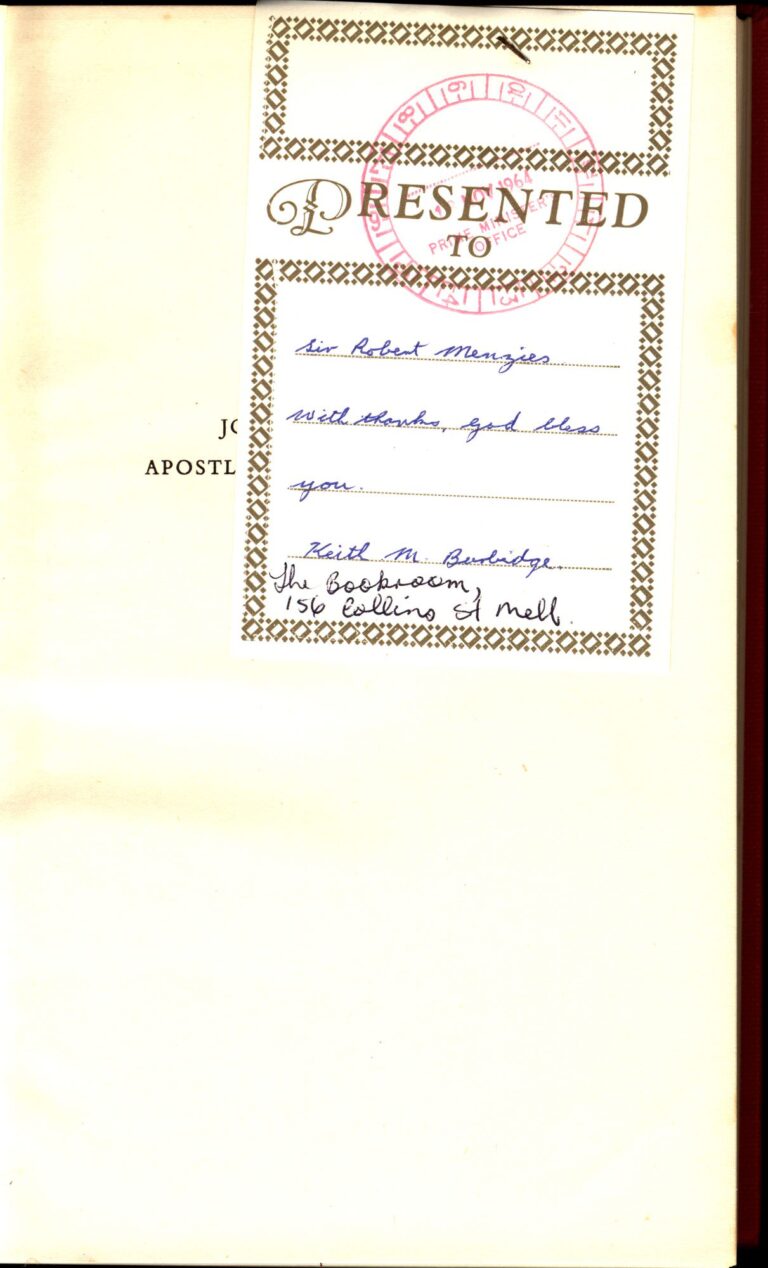 PRESENTED
TO
NOV 1964
PRIME MINISTER
OFFICE
Sir Robert Menzies
With thanks, god bless
you.
Keith M. Burbidge.
The Bookroom,
156 Collins St Melb.
JO
APOSTL